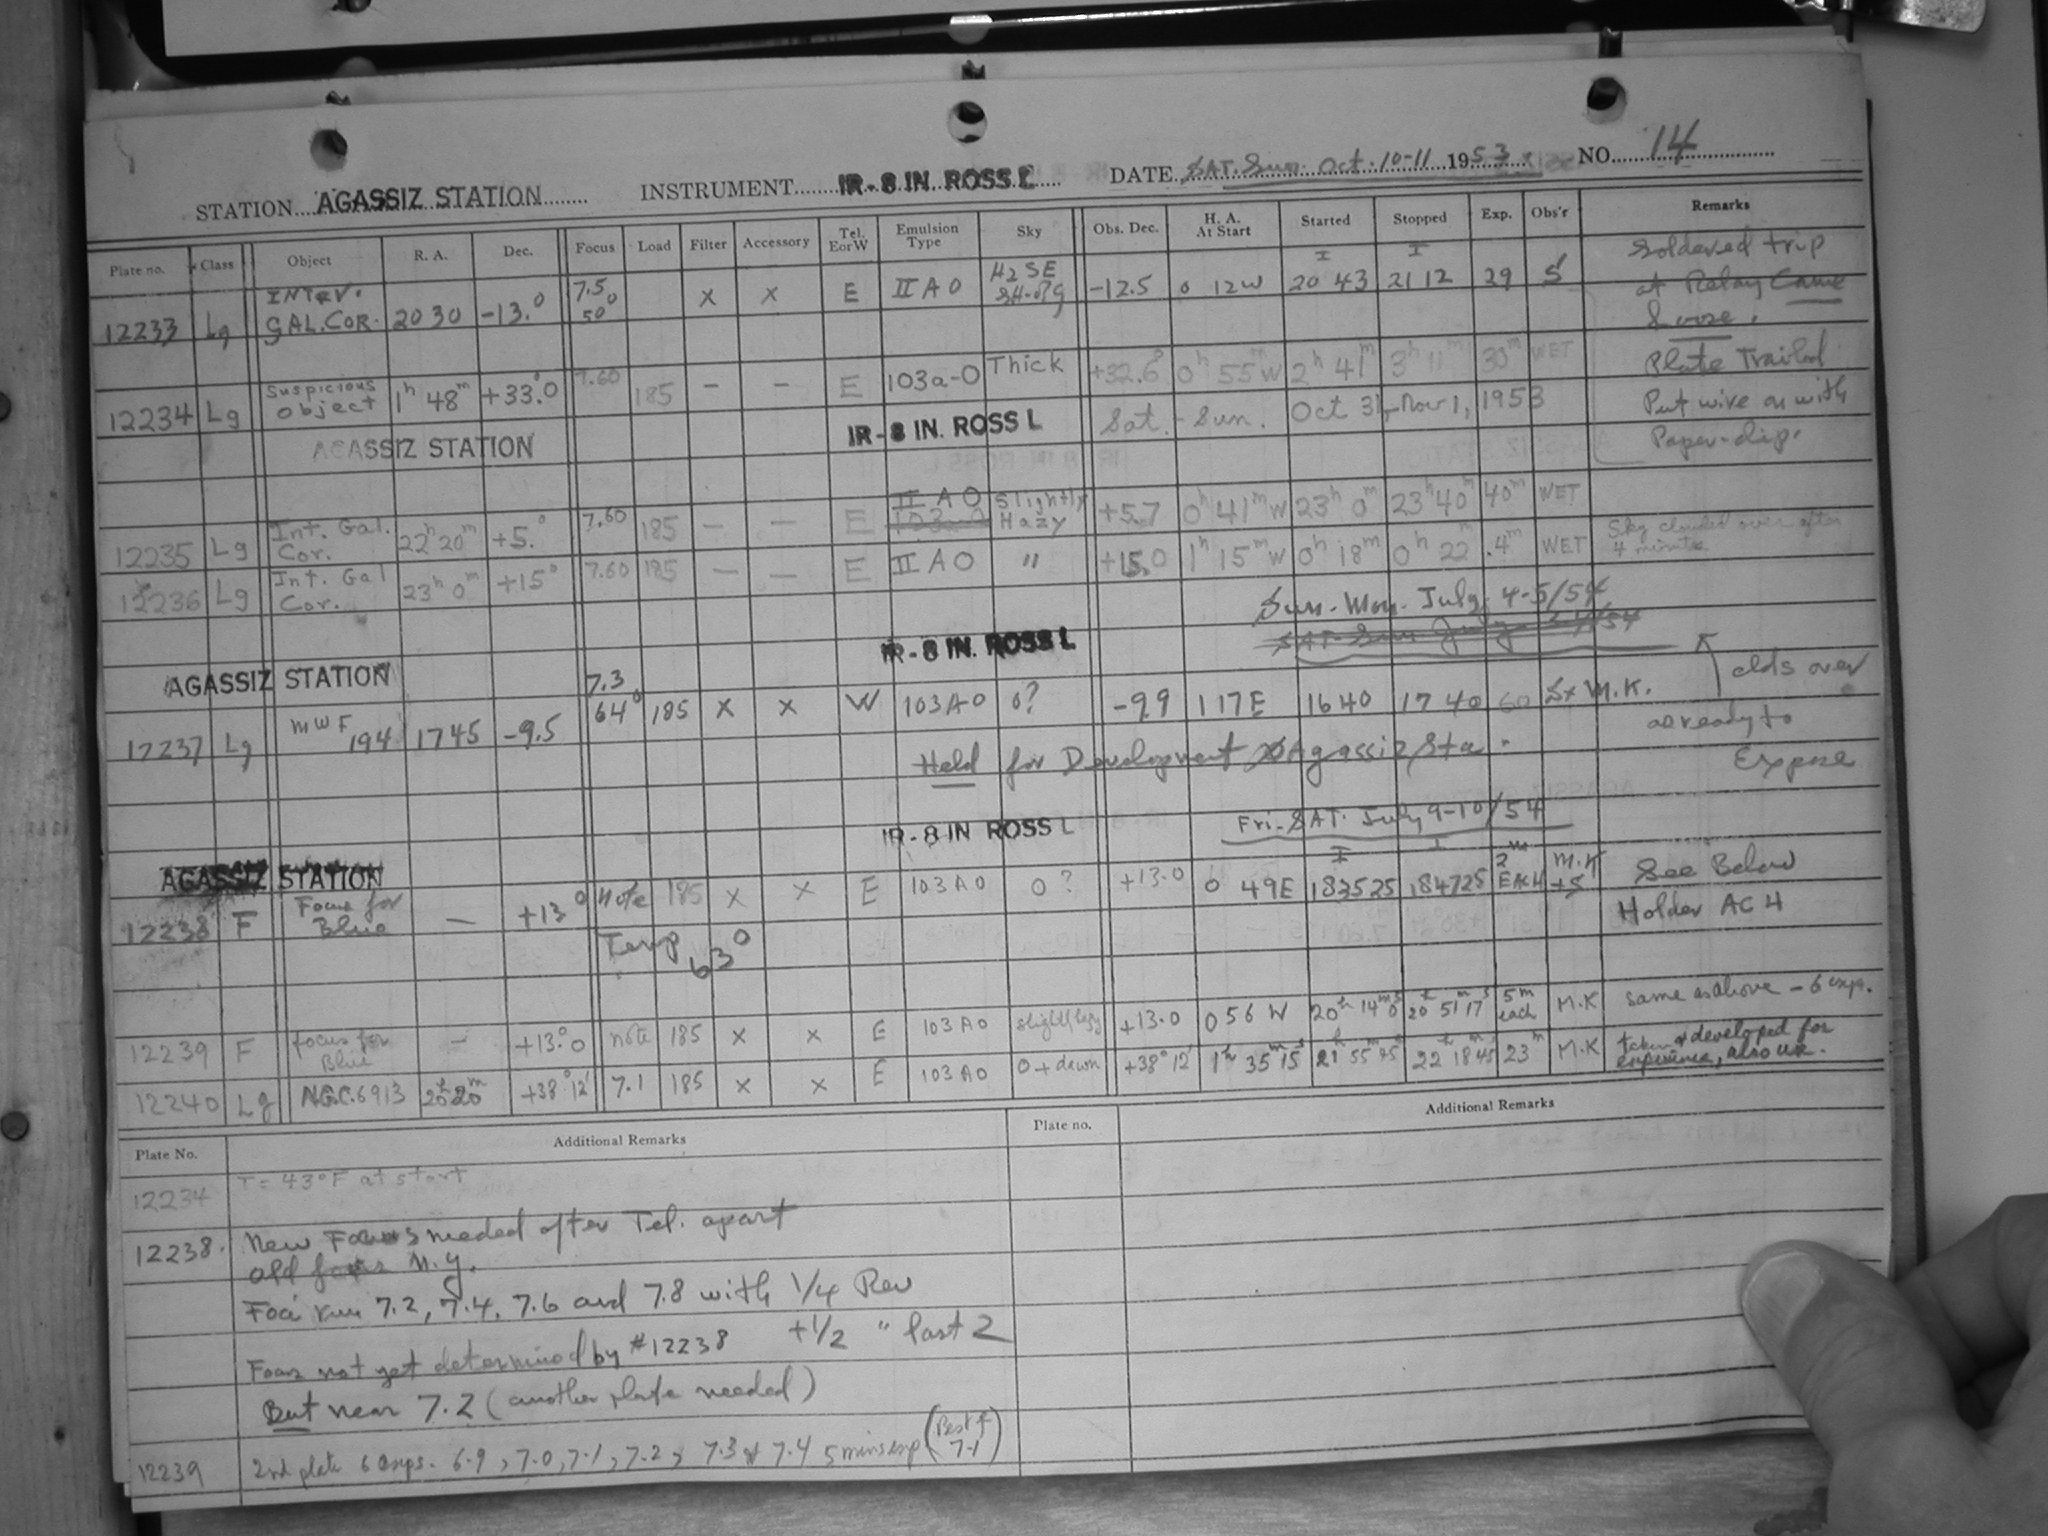 STATION AGASSIZ STATION INSTRUMENT IR-8 IN. ROSS L DATE SAT. Sun. Oct. 10-11 1953 NO. 14
Plate no. Class Object R. A. Dec. Focus Load Filter Accessory Tel. E or W Emulsion Type Sky Obs. Dec. H. A. At Start Started Stopped Exp. Obs'r Remarks
12233 Lg INTER. GAL. COR. 20 30 -13.0 7.5 50° X X E II A O -12.5 0 12W 20 43 21 12 29 S Soldered trip
at Relay Came
Loose.
12234 Lg Suspicious object 1h 48m +33.0 7.60 185 - - E 103a-O Thick +32.6 0h 55m W 2h 41m 3h 11m 30m WET Plate Trailed
AGASSIZ STATION IR-8 IN. ROSS L Sat. - Sun. Oct 31, Nov 1, 1953 Put wire on with
Paper-clip.
12235 Lg Int. Gal. Cor. 22h 20m +5.° 7.60 185 - - E II A O Slightly Hazy +5.7 0h 41m W 23h 0m 23h 40m 40m WET
12236 Lg Int. Gal Cor. 23h 0m +15° 7.60 185 - - E II A O " +15.0 1h 15m W 0h 18m 0h 22 4m WET Sky clouded over after 4 minutes
Sun. - Mon. July 4-5/54
IR-8 IN. ROSS L SAT- Sun July 3-4/54
AGASSIZ STATION
12237 Lg MWF 194 17 45 -9.5 7.3 64° 185 X X W 103 A O 0? -9.9 1 17E 16 40 17 40 60 S x M.K. clds over
as ready to
Expose
Held for Development Agassiz Sta.
IR-8 IN ROSS L Fri-SAT. July 9-10/54
AGASSIZ STATION
12238 F Focus for Blue - +13° Note 185 X X E 103 A O 0? +13.0 0 49E 18 35 25 18 47 25 2m EACH M.K +S See Below
Temp 63° Holder AC 4
12239 F focus for Blue - +13.°0 note 185 X X E 103 A O +13.0 0 56 W 20h 14m 0s 20h 51m 17s 5m each M.K same as above - 6 exps.
12240 Lg N.G.C. 6913 20h 20m +38° 12' 7.1 185 X X E 103 A O 0 + dawn +38° 12' 1h 35m 15s 21h 55m 45s 22h 18m 45s 23m M.K taken & developed for experience, also
Plate No. Additional Remarks Plate no. Additional Remarks
12234 T = 43°F at start
12238. New Focus needed after Tel. apart
old focus N.G.
Foci run 7.2, 7.4, 7.6 and 7.8 with 1/4 Rev
+1/2 " last 2
Focus not yet determined by #12238
But near 7.2 (another plate needed)
12239 2nd plate 6 exps. 6.9, 7.0, 7.1, 7.2, 7.3 & 7.4 5 mins exp (Best f 7.1)